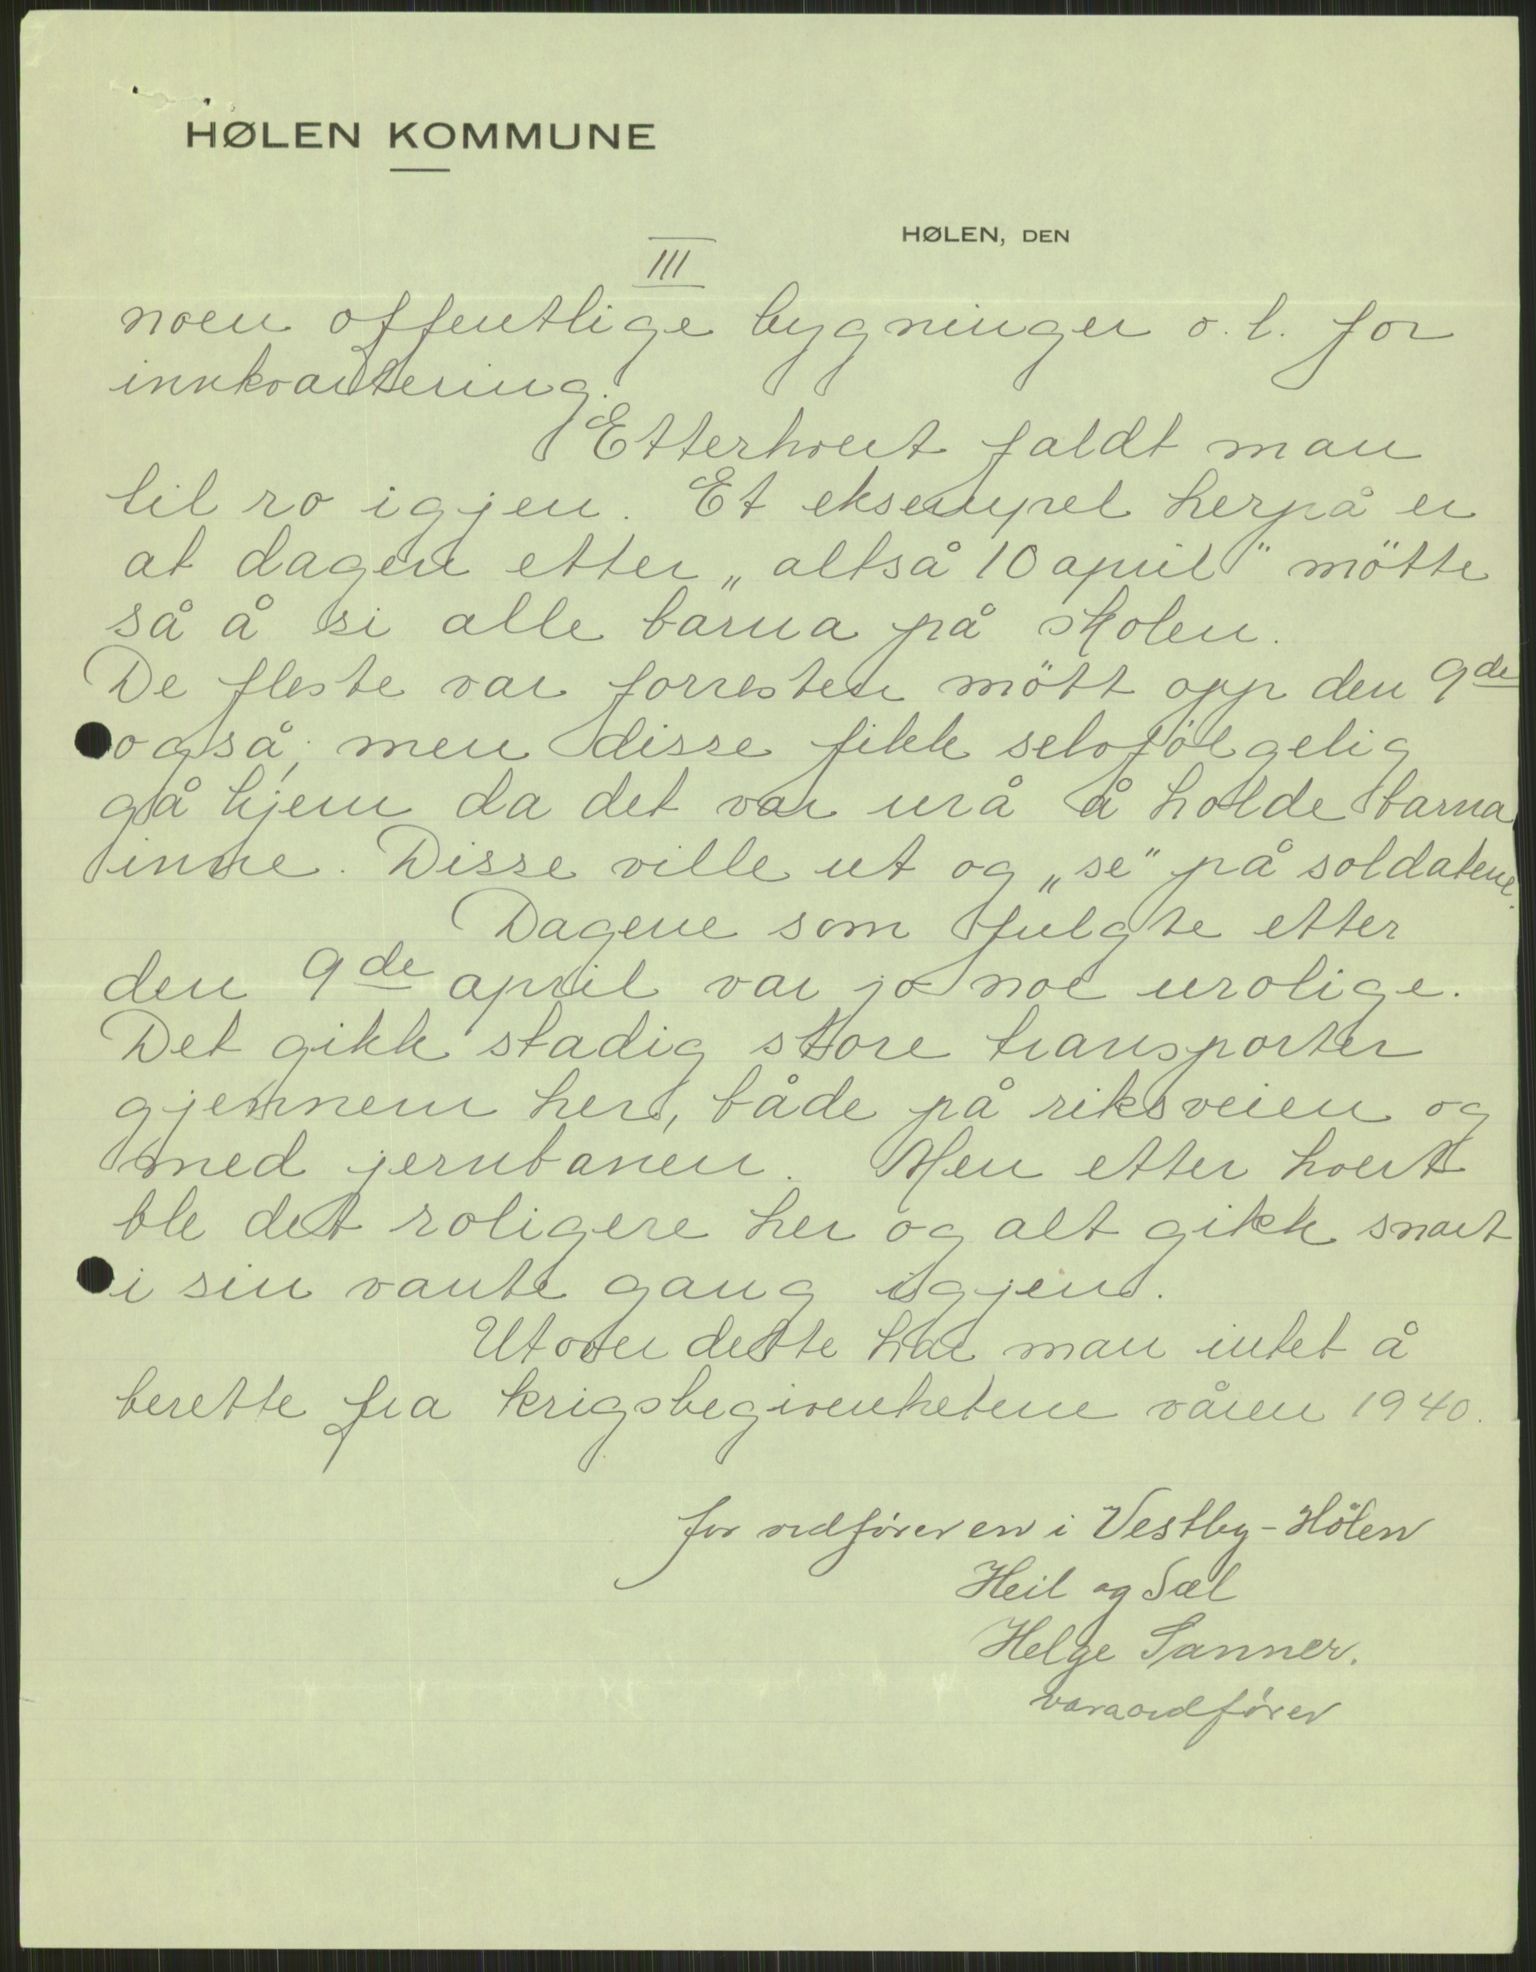 HØLEN KOMMUNE
HØLEN, DEN
III
noen offentlige bygninger o.l. for
innkvartering.
Etterhvert faldt man
til ro igjen. Et eksempel herpå er
at dagen etter „altså 10 april" møtte
så å si alle barna på skolen.
De fleste var forresten møtt opp den 9de
også, men disse fikk selvfølgelig
gå hjem da det var urå å holde barna
inne. Disse ville ut og „se" på soldatene.
Dagene som fulgte etter
den 9de april var jo noe urolige.
Det gikk stadig store transporter
gjennem her, både på riksveien og
med jernbanen. Men etter hvert
ble det roligere her og alt gikk snart
i sin vante gang igjen.
Utover dette har man intet å
berette fra krigsbegivenhetene våren 1940.
for ordføreren i Vestby-Hølen
Heil og Sæl
Helge Sanner.
varaordfører